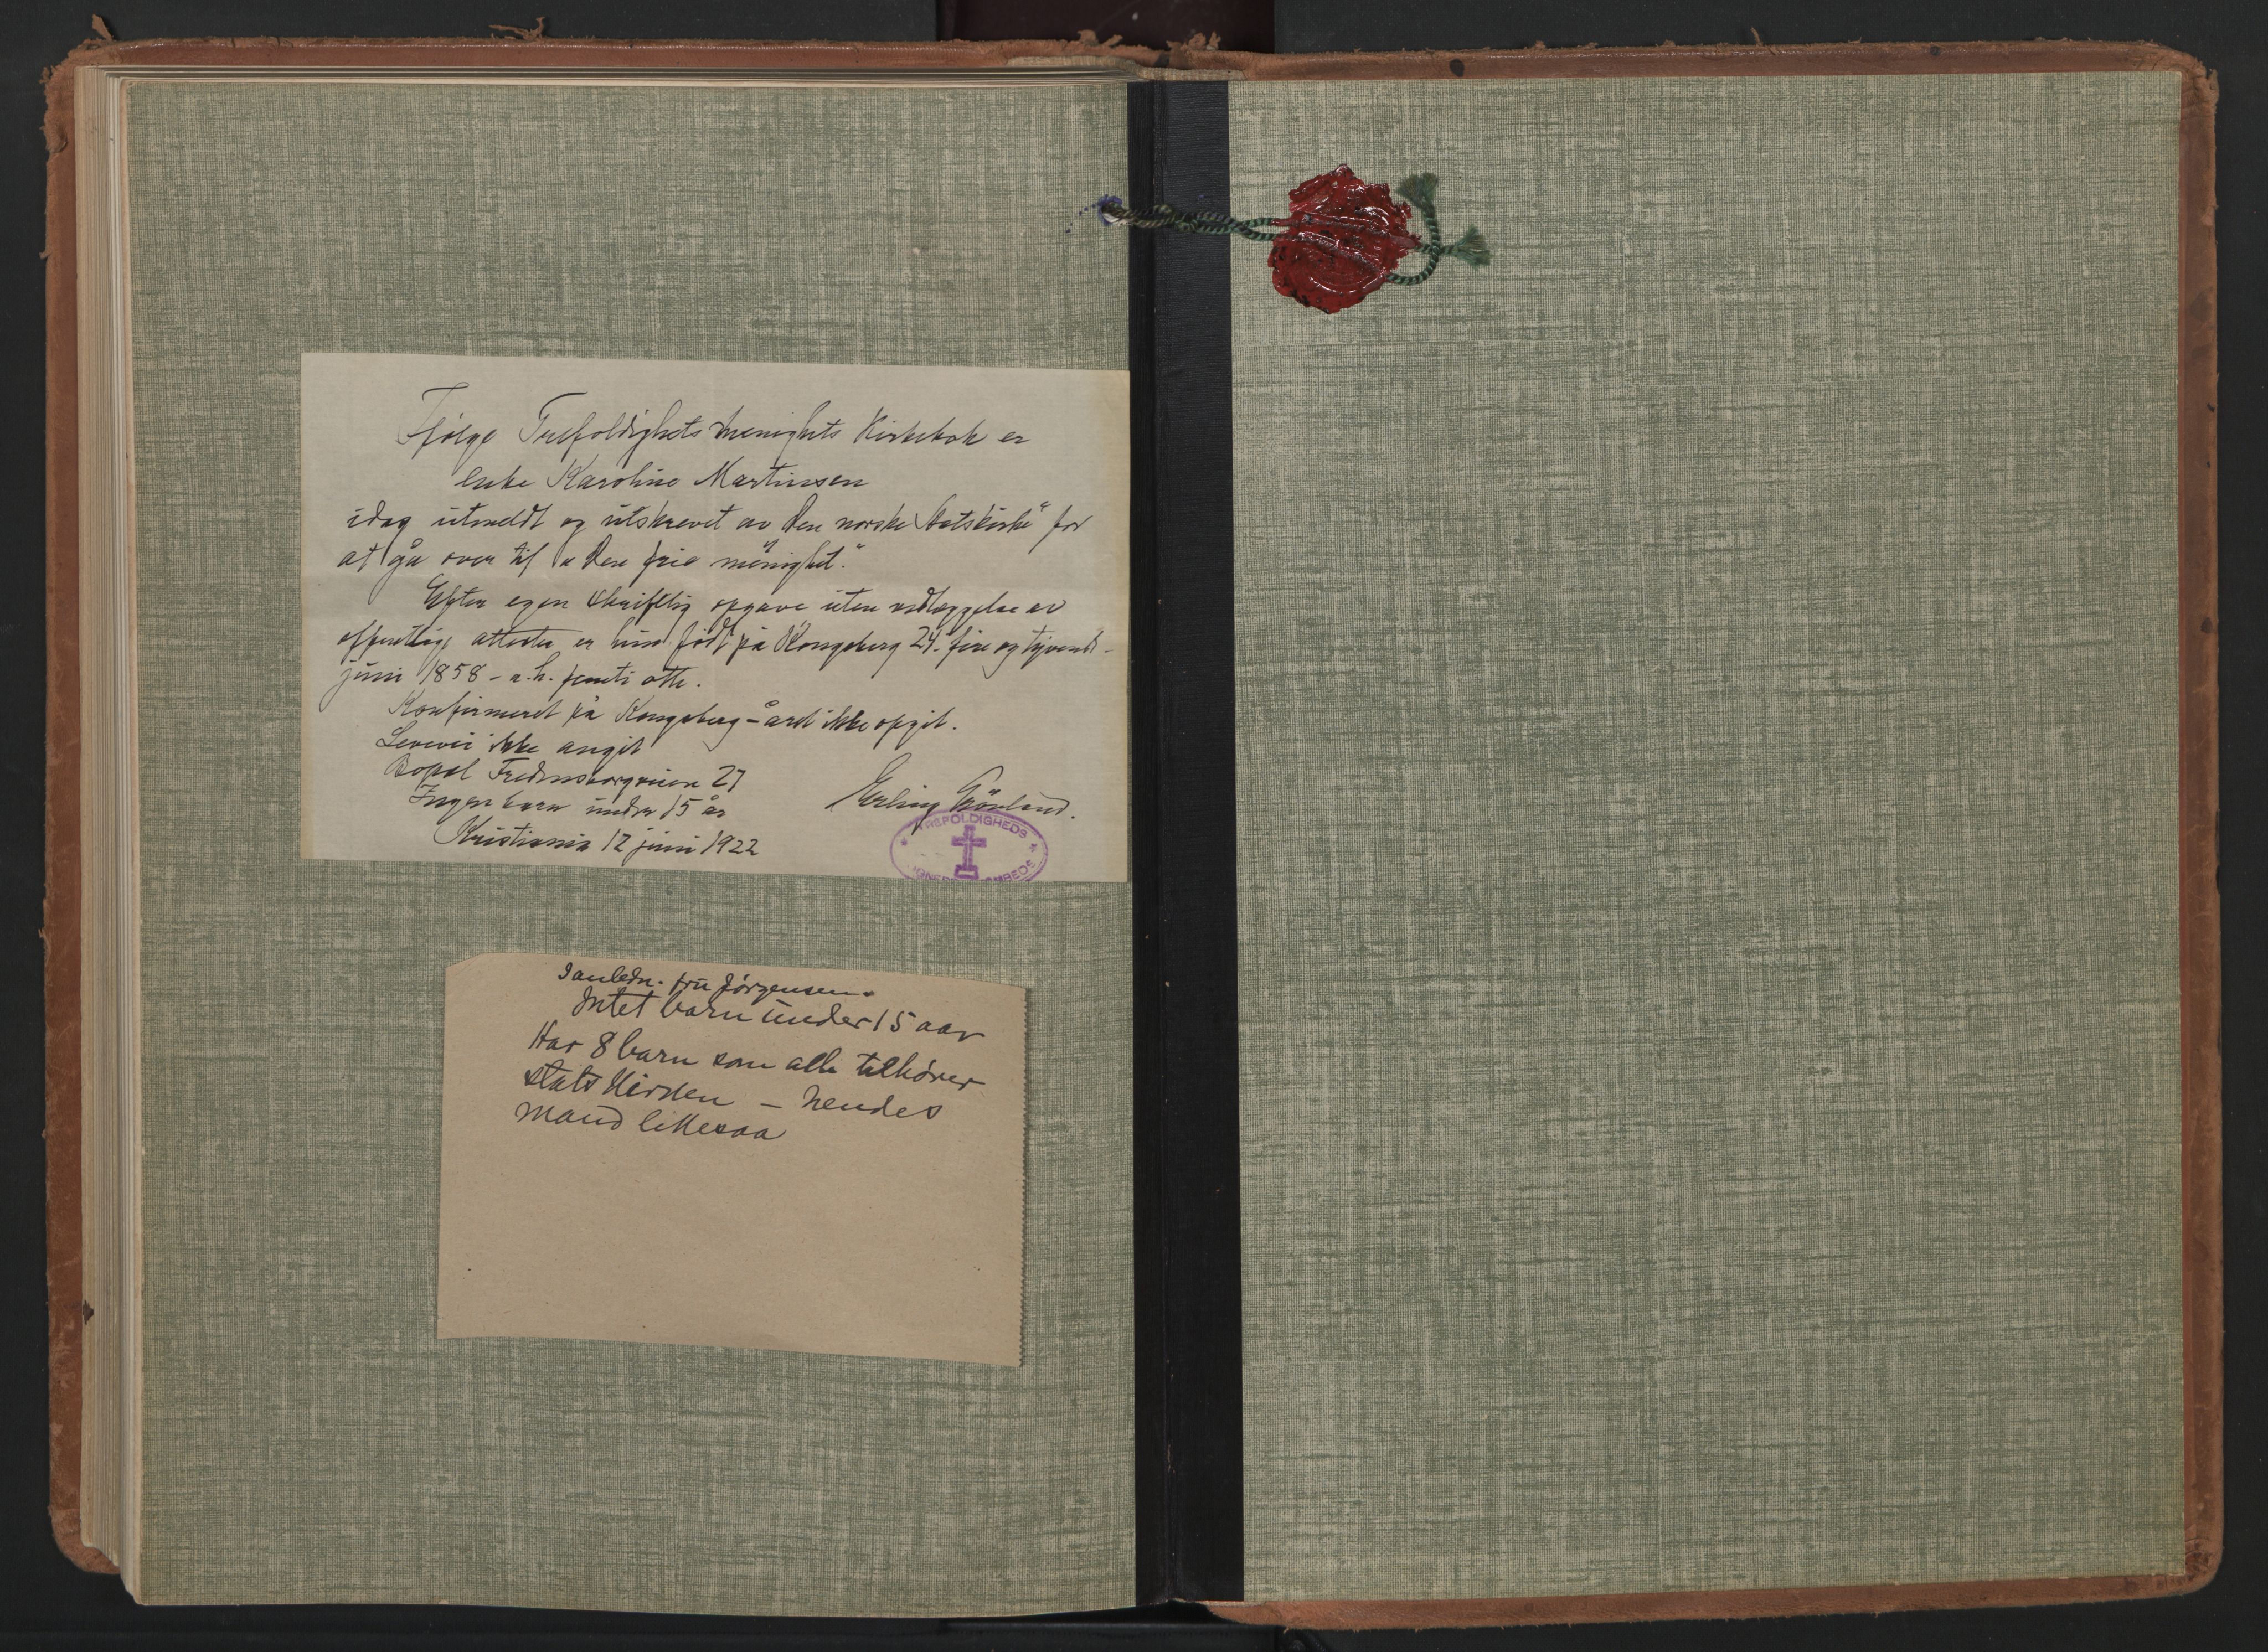 Ifølge Trefoldighets menighets Kirkebok er
enke Karoline Martinsen
idag utmeldt og utskrevet av "Den norske Statskirke" for
at gå over til "Den frie menighet."
Efter egen skriftlig opgave uten vedlæggelse av
offentlige attester er hun født på Kongsberg 24. fire og tyvende
juni 1858 - a.h. femti otte.
Konfirmeret på Kongsberg - året ikke opgit.
Levevei ikke angit
Bopæl Fredensborgveien 27
Ingen barn under 15 år
Kristiania 12 juni 1922
Erling Grönland.
TREFOLDIGHEDS
EMBEDE
Janledn. fru Jørgensen.
Intet barn under 15 aar
Har 8 barn som alle tilhører
statskirken - hendes
mand likesaa